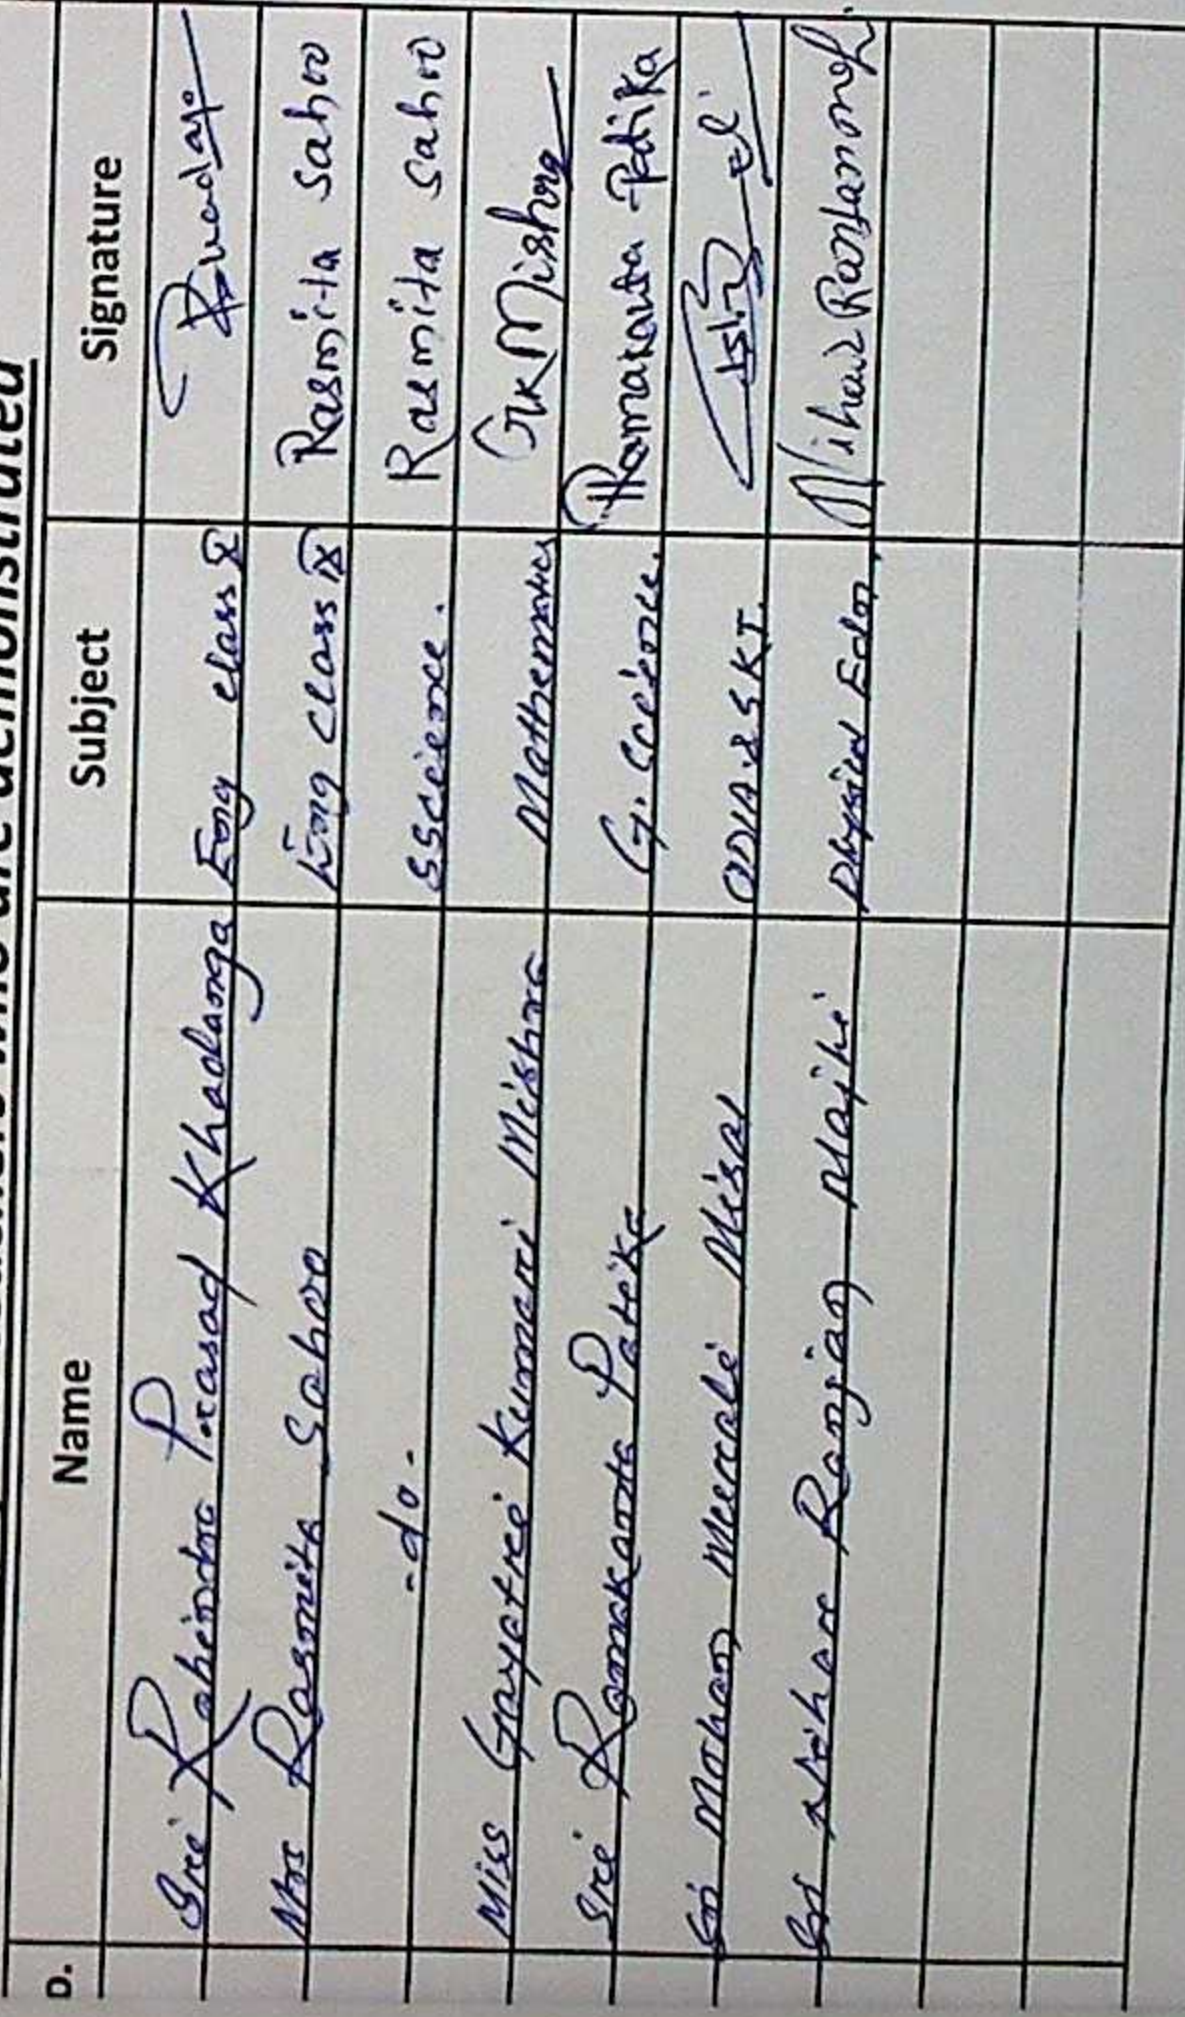 who are demonstrated
D. Name Subject Signature
Sri Rabindra Prasad Khadanga Eng class X
Mrs Rasmita Sahoo Eng Class IX Rasmita Sahoo
-do- SScience. Rasmita Sahoo
Miss Gayatri Kumari Mishra Mathematics GKMishra
Sri Ramakanta Patika G. Science. Ramakanta Patika
Sri Mohan Murali Misal ODIA & SKT.
Sri Nihar Ranjan Majhi Physical Edn. Nihar Ranjan